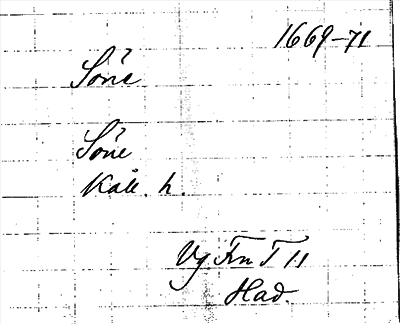 1669-71
Söne
Söne
Kåll. h.
Vg Fn T 11
Had.